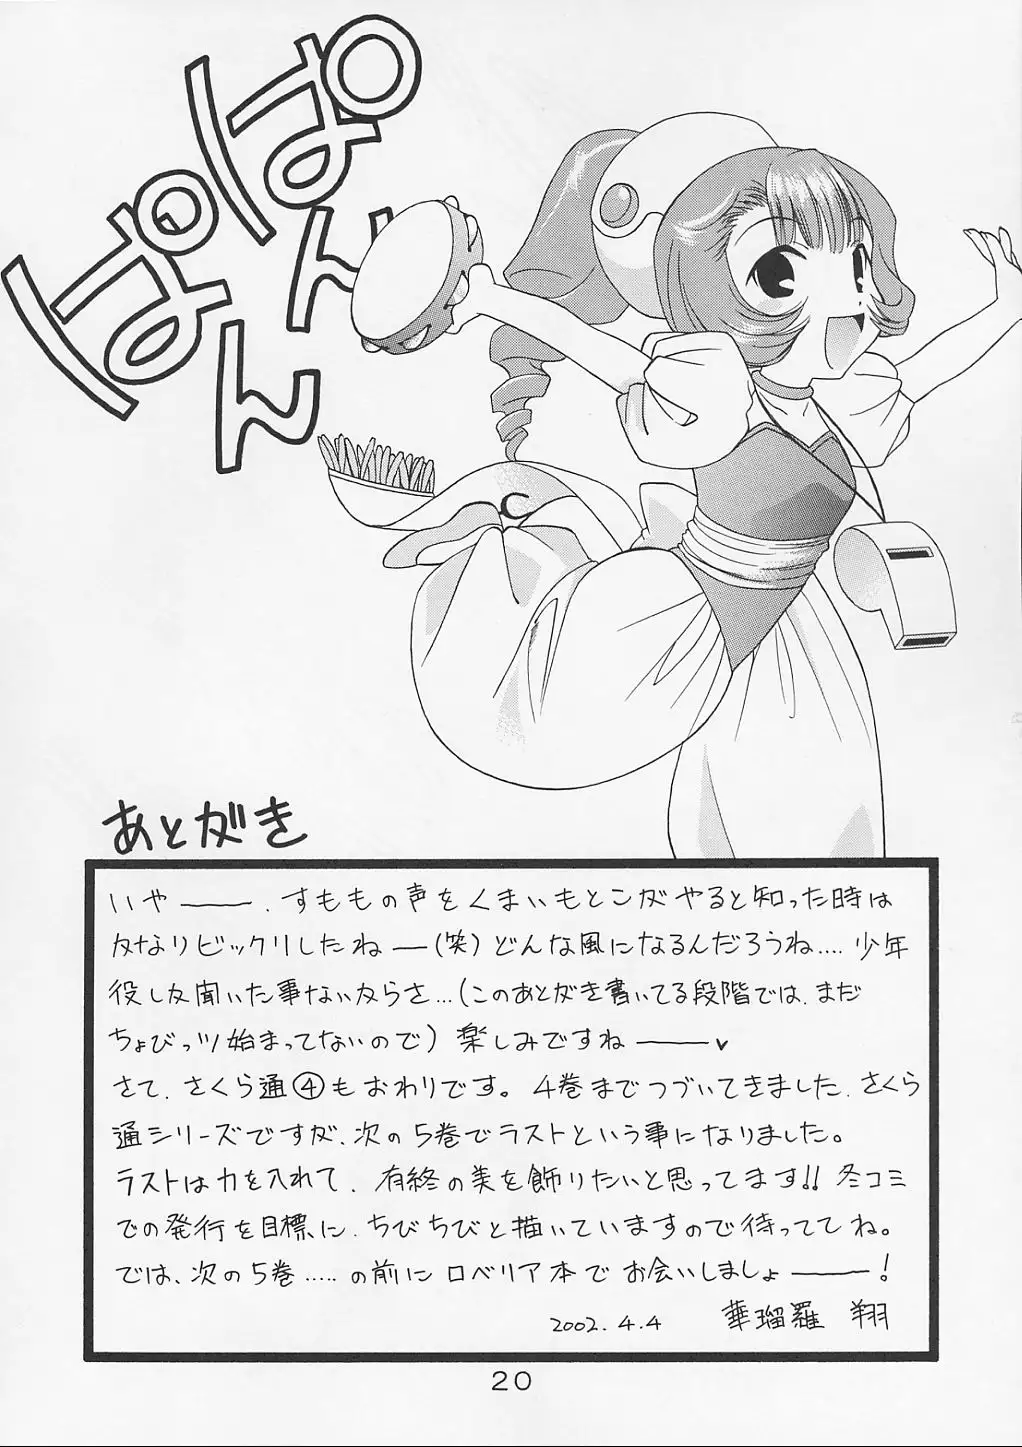 ぱぱん
ぱぱん
あとがき
いや―――.すももの声をくまいもとこがやると知った時は
かなりビックリしたね―(笑)どんな風になるんだろうね....少年
役しか聞いた事ないからさ...(このあとがき書いてる段階では、まだ
ちょびっツ始まってないので)楽しみですね―――♥
さて、さくら通④もおわりです。4巻までつづいてきました、さくら
通シリーズですが、次の5巻でラストという事になりました。
ラストは力を入れて、有終の美を飾りたいと思ってます!!冬コミ
での発行を目標に、ちびちびと描いていますので待っててね。
では、次の5巻.....の前にロベリア本でお会いしましょ―――!
2002.4.4 華瑠羅 翔
20